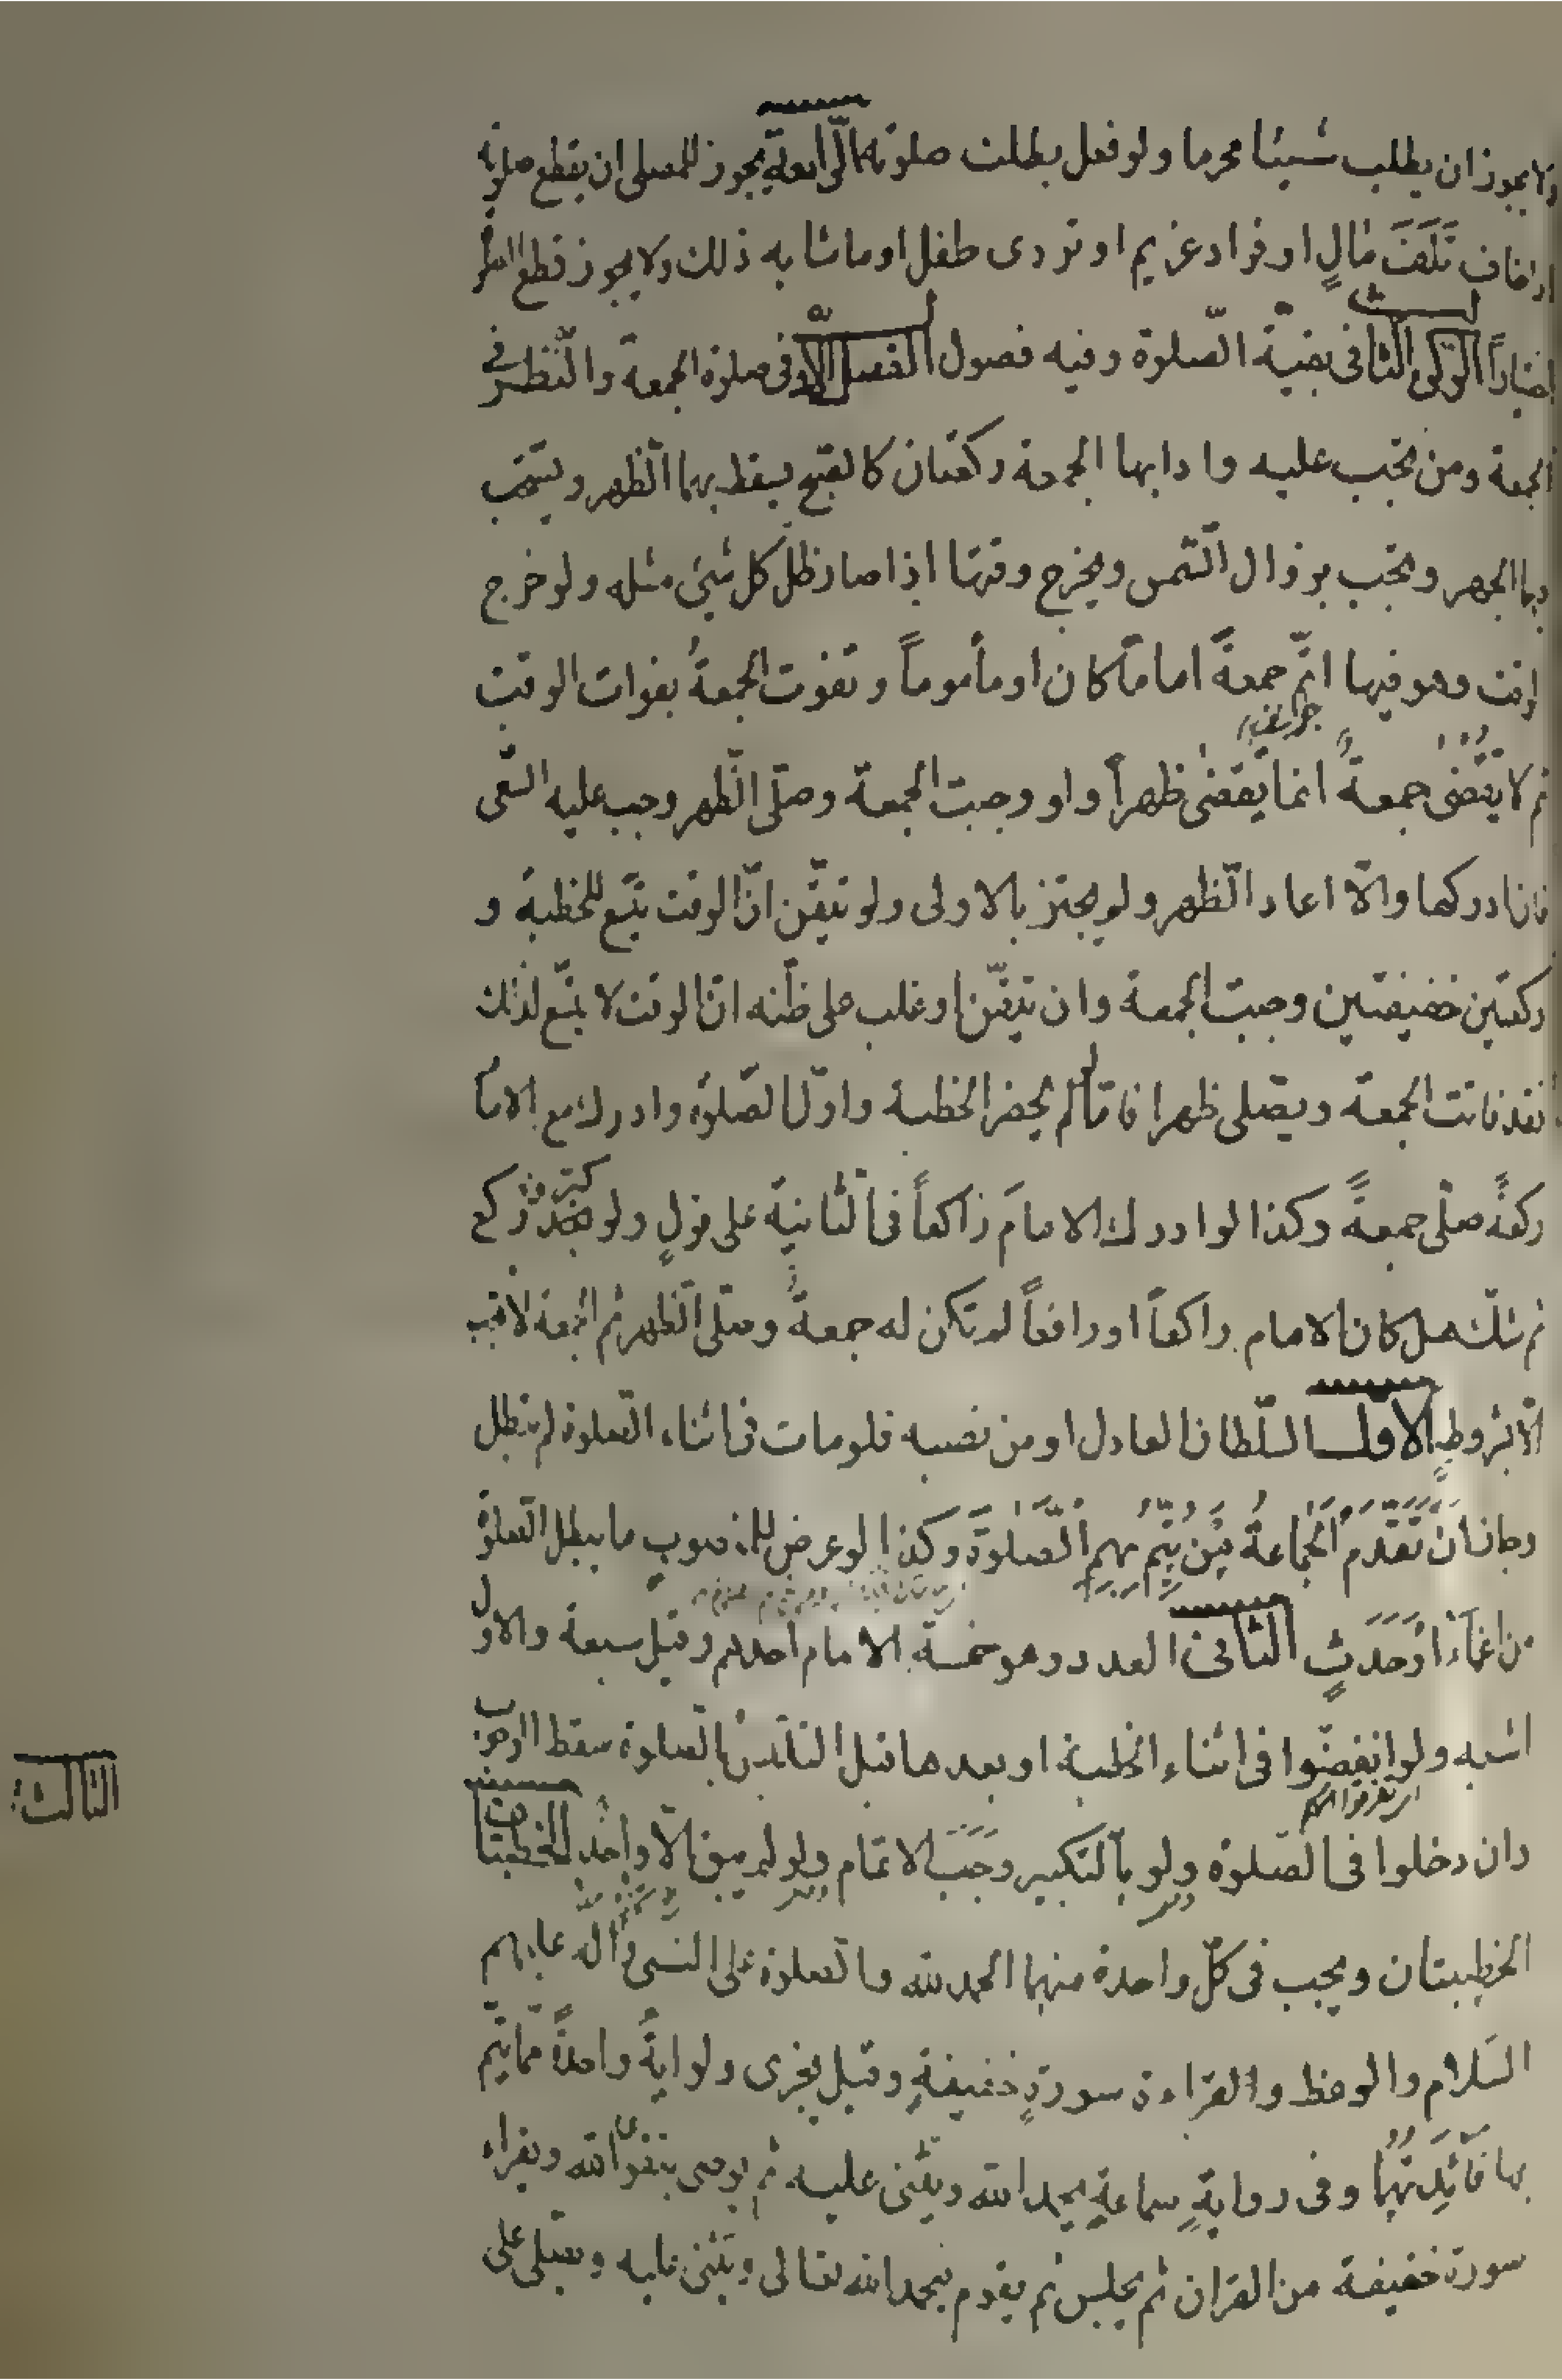 ولا يجوز ان يطلب شيئا محرما ولو فعل بطلت صلوته الرابعة يجوز للمصلى ان يقطع صلوته
اذا خاف تَلَفَ مالٍ او فرار غريم او تردى طفل او ما شابه ذلك ولا يجوز قطع الصلوة
اختياراً الركن الثانى فى بقيّة الصّلوة وفيه فصول الفصل الاول فى صلوة الجمعة والنّظر فى
الجمعة ومن تجب عليه وادابها الجمعة ركعتان كالصبح يسقط بهما الظّهر ويستحب
بهما الجهر وتجب بزوال الشّمس ويخرج وقتها اذا صار ظلّ كل شيئ مثله ولو خرج
الوقت وهو فيها اتمّ جمعةً اماماً كان او مأموماً وتفوت الجمعةُ بفوات الوقت
ثم لا يُقضى جمعةً انما يُقضى ظهراً ولو وجبت الجمعة وصلّى الظّهر وجب عليه السّعى
فان ادركها والّا اعاد الظّهر ولم يجتز بالاولى ولو تيقّن انّ الوقت يتّسع للخطبة و
ركعتين خفيفتين وجبت الجمعة وان تيقّن او غلب على ظنّه انّ الوقت لا يتّسع لذلك
فقد فاتت الجمعة ويصلى ظهرا فامّا لو لم يحضر الخطبة واوّل الصّلوة وادرك مع الامام
ركعةً صلّى جمعةً وكذا لو ادرك الامامَ راكعاً فى الثانية على قولٍ ولو كبّر وركع
ثم شكّ هل كان الامام راكعاً او رافعاً لم تكن له جمعةٌ وصلّى الظهر ثم الجمعة لا تجب
الّا بشروطٍ الاول السّلطان العادل او من نصبه فلو مات فى اثناء الصّلوة لم تبطل
وجاز ان تَقَدَّمَ الجماعةُ مَن يُتِمُّ بهم الصّلوةَ وكذا لو عرض للمنصوب ما يبطل الصلوة
من اغماءٍ او حَدَثٍ الثانى العدد وهو خمسة الامام احدهم وقيل سبعة والاول
اشبه ولو انفضّوا فى اثناء الخطبة او بعدها قبل التلبّس بالصلوة سقط الوجوب
اى تفرقوا
وان دخلوا فى الصّلوة ولو بالتكبير وَجَبَ الاتمام ولو لم يبق الّا واحدٌ الخطبتان
الثالث
الخطبتان ويجب فى كلّ واحدة منهما الحمد لله والصلوة على النبىّ وآله عليهم
السّلام والوعظ والقراءة سورةٍ خفيفةٍ وقيل يجزى ولو ايةً واحدةً ممّا يتمّ
بها فائدتها وفى روايةِ سماعةٍ يحمد الله ويثنى عليه ثم يوصى بتقوى الله ويقراء
سورة خفيفة من القران ثم يجلس ثم يقوم فيحمد الله تعالى ويثنى عليه ويصلّى على